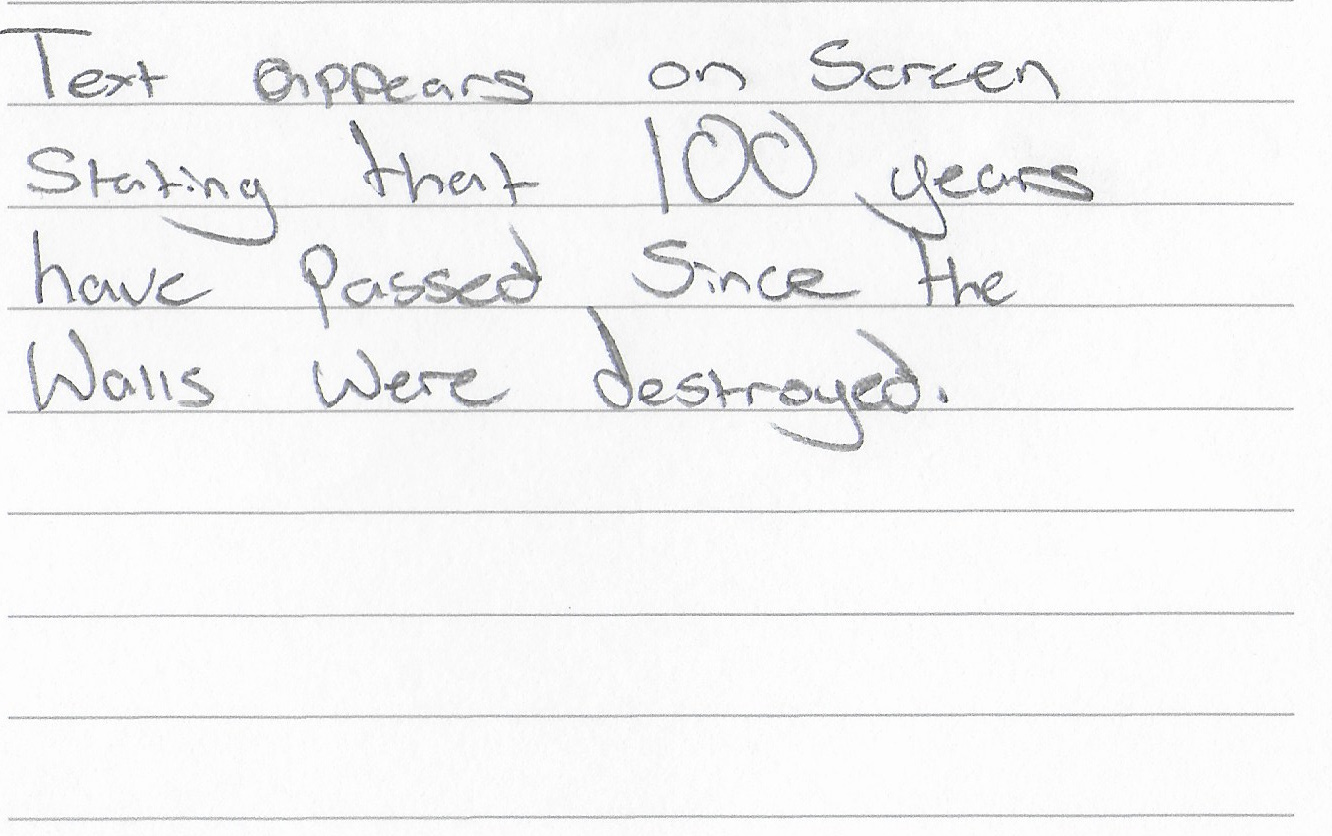 Text appears on Screen
Stating that 100 years
have Passed Since the
Walls were destroyed.